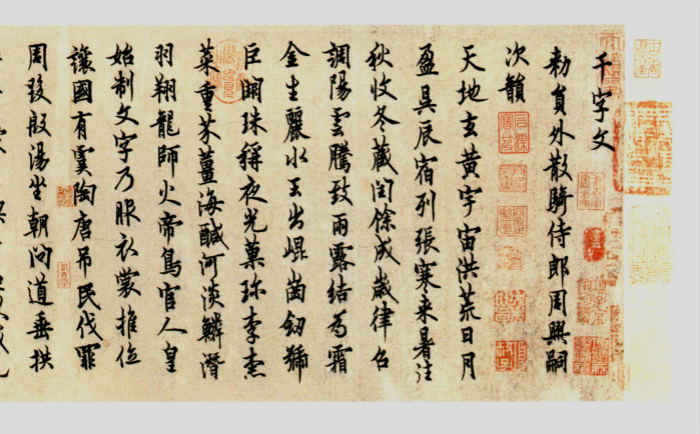 千字文
勑員外散騎侍郎周興嗣
次韻
天地玄黃宇宙洪荒日月
盈昃辰宿列張寒来暑往
秋收冬蔵閏餘成歲律召
調陽雲騰致雨露結為霜
金生麗水玉出崐崗劒號
巨闕珠稱夜光菓珎李柰
菜重芥薑海鹹河淡鱗潛
羽翔龍師火帝鳥官人皇
始制文字乃服衣裳推位
讓國有虞陶唐吊民伐罪
周發殷湯坐朝問道垂拱